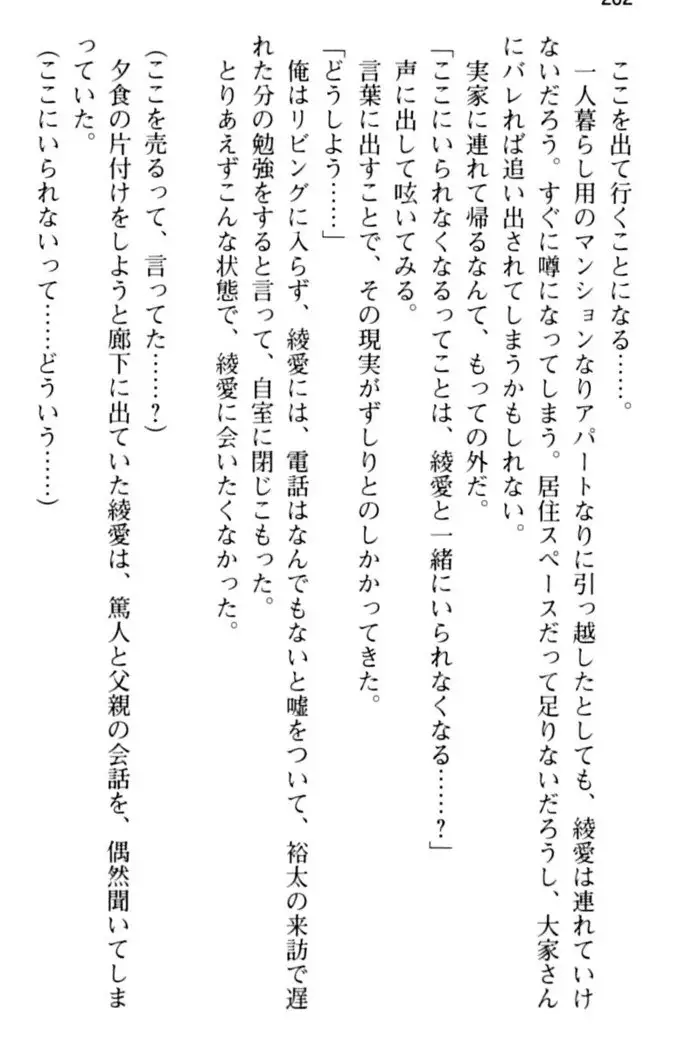 202
ここを出て行くことになる……。
一人暮らし用のマンションなりアパートなりに引っ越したとしても、綾愛は連れていけ
ないだろう。すぐに噂になってしまう。居住スペースだって足りないだろうし、大家さん
にバレれば追い出されてしまうかもしれない。
実家に連れて帰るなんて、もっての外だ。
「ここにいられなくなるってことは、綾愛と一緒にいられなくなる……？」
声に出して呟いてみる。
言葉に出すことで、その現実がずしりとのしかかってきた。
「どうしよう……」
俺はリビングに入らず、綾愛には、電話はなんでもないと嘘をついて、裕太の来訪で遅
れた分の勉強をすると言って、自室に閉じこもった。
とりあえずこんな状態で、綾愛に会いたくなかった。
（ここを売るって、言ってた……？）
夕食の片付けをしようと廊下に出ていた綾愛は、篤人と父親の会話を、偶然聞いてしま
っていた。
（ここにいられないって……どういう……）